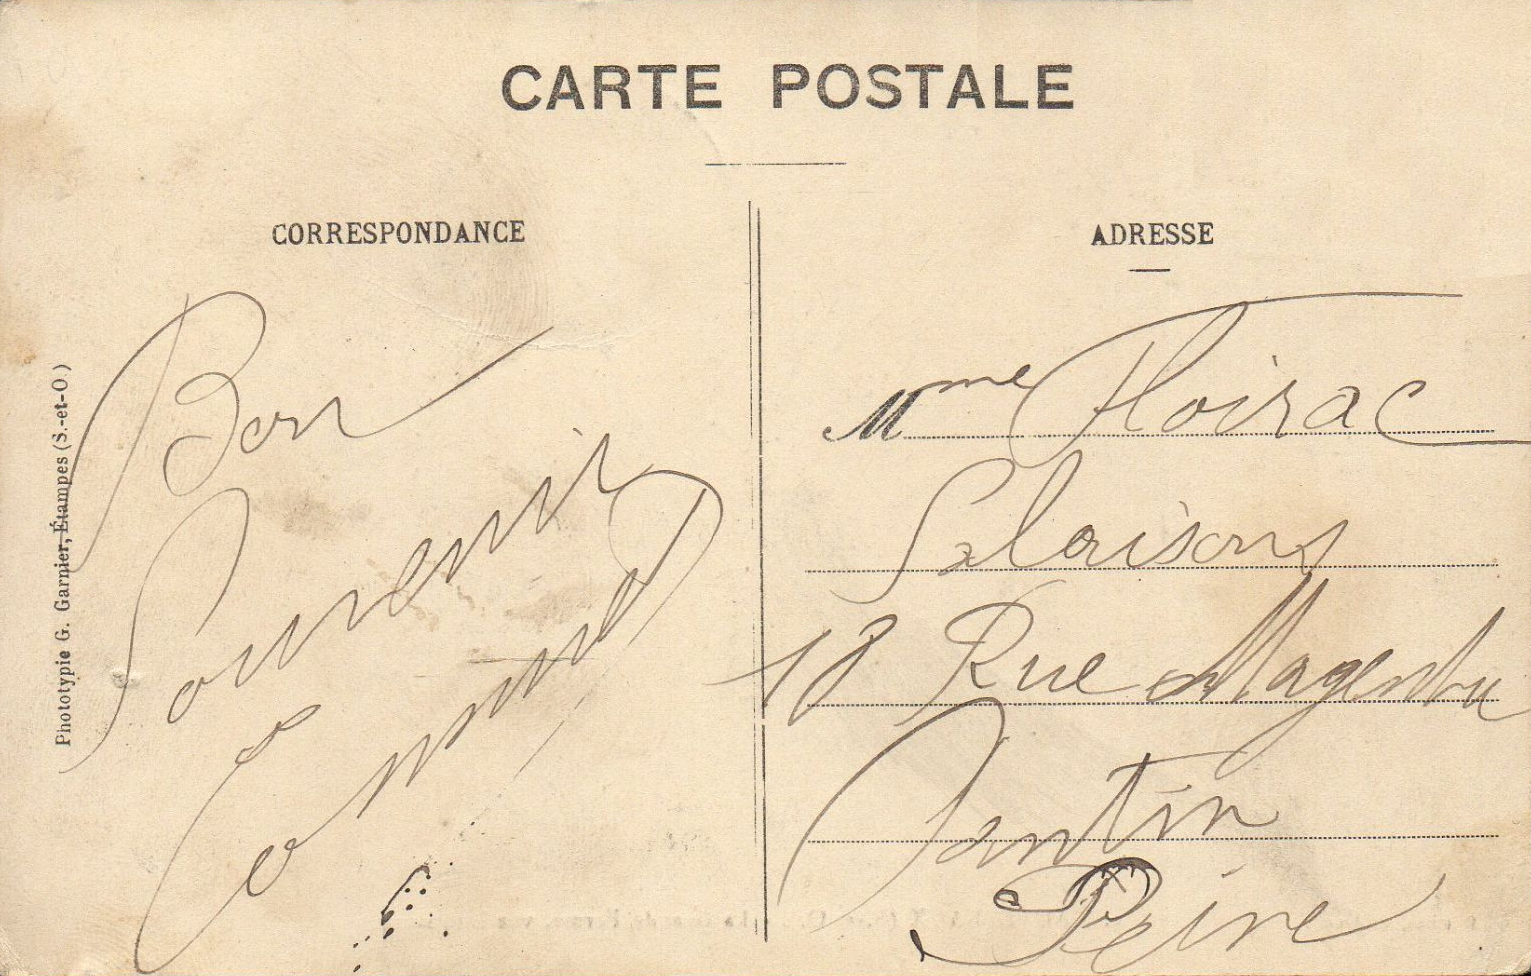 CARTE POSTALE
CORRESPONDANCE
ADRESSE
Phototypie G. Garnier, Étampes (S.-et-O.)
Bon
Souvenir
Mme Floirac
Salaisons
18 Rue Magenta
Pantin
Seine